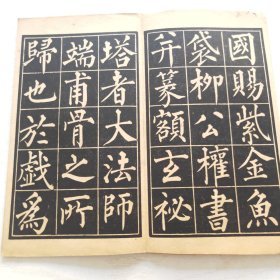 國賜紫金魚
袋柳公權書
并篆額玄祕
塔者大法師
端甫骨之所
歸也於戲為